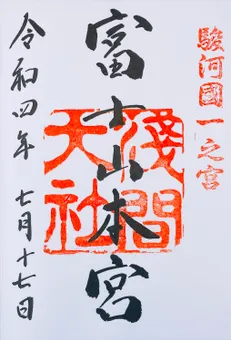 駿河國一之宮
富士山本宮
淺間
天社
令和四年 七月十七日